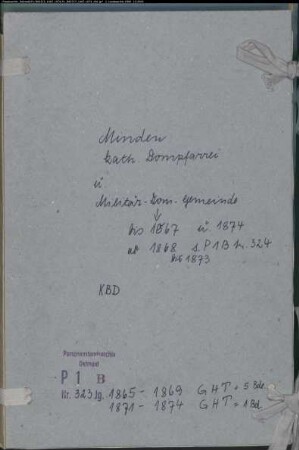 Minden
kath Dompfarrei
u
Militär-Dom-Gemeinde
↓
bis 1867 u 1874
ab 1868 s. P1B Nr. 324
bis 1873
KBD
Personenstandsarchiv
Detmold
P 1 B
Nr. 323 Jg. 1865 - 1869 GHT = 5 Bde
1871 - 1874 GHT = 1 Bd